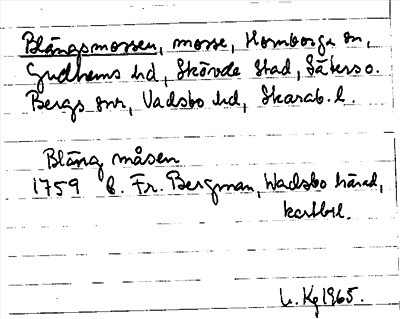 Blängsmossen, mosse, Hornborga sn,
Gudhems hd, Skövde stad, Säters o.
Bergs snr, Vadsbo hd, Skarab. l.
Bläng måsen
1759 C. Fr. Bergman, Wadsbo härad,
kartbil.
L. Kg 1965.